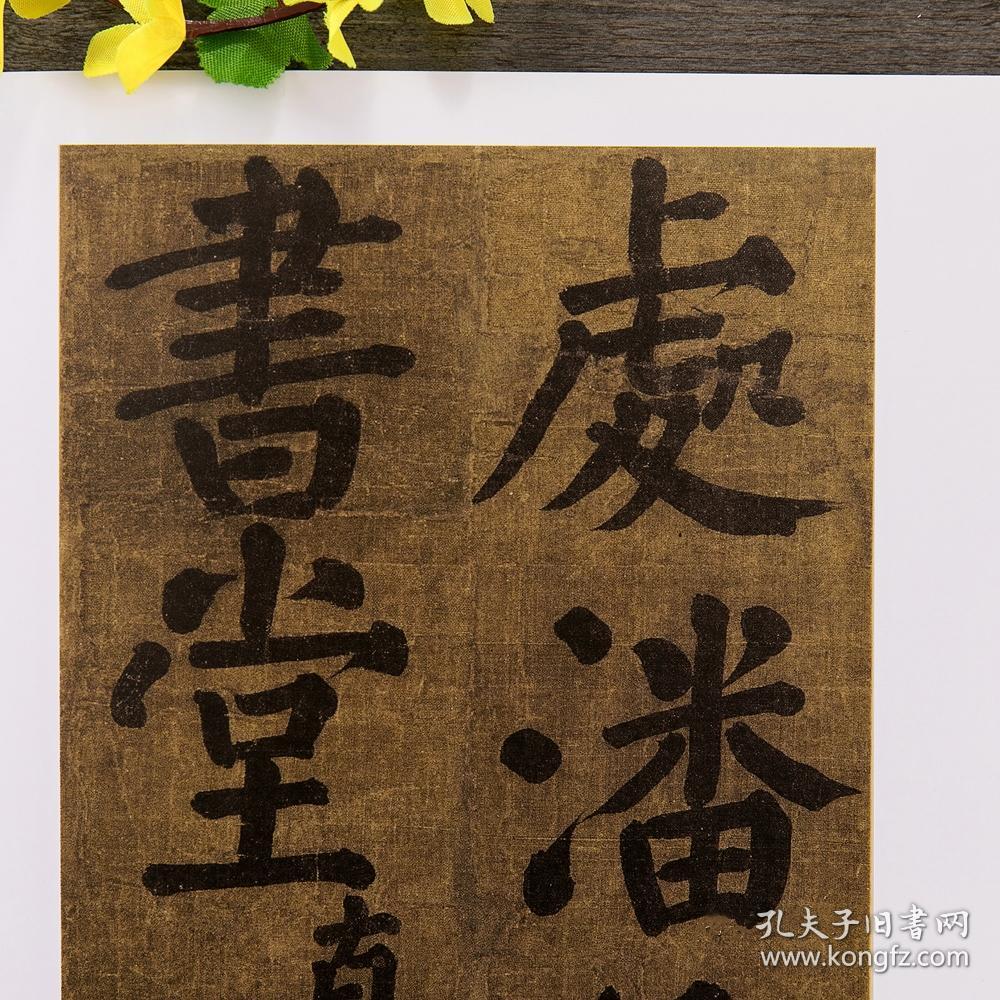 處潘
書堂
孔夫子旧書网
www.kongfz.com